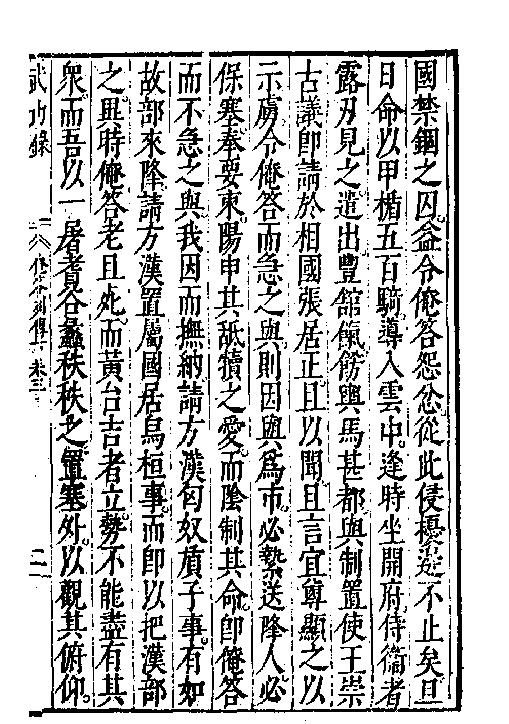 國禁錮之囚益令俺答怨忿從此侵擾邊不止矣旦
日命以甲楯五百騎導入雲中逢時坐開府侍衞者
露刃見之遣出豐館儀餝輿馬甚都與制置使王崇
古議卽請於相國張居正且以聞且言宜尊顯之以
示虜令俺答而急之與則因與爲市必縶送降人必
保塞奉要束陽申其舐犢之愛而陰制其命卽俺答
而不急之與我因而撫納請方漢匈奴質子事有如
故部來降請方漢置屬國居烏桓事而卽以把漢部
之異時俺答老且死而黃台吉者立勢不能盡有其
衆而吾以一屠耆谷蠡秩秩之置塞外以觀其俯仰
武功錄
俺答列傳下 卷三
二